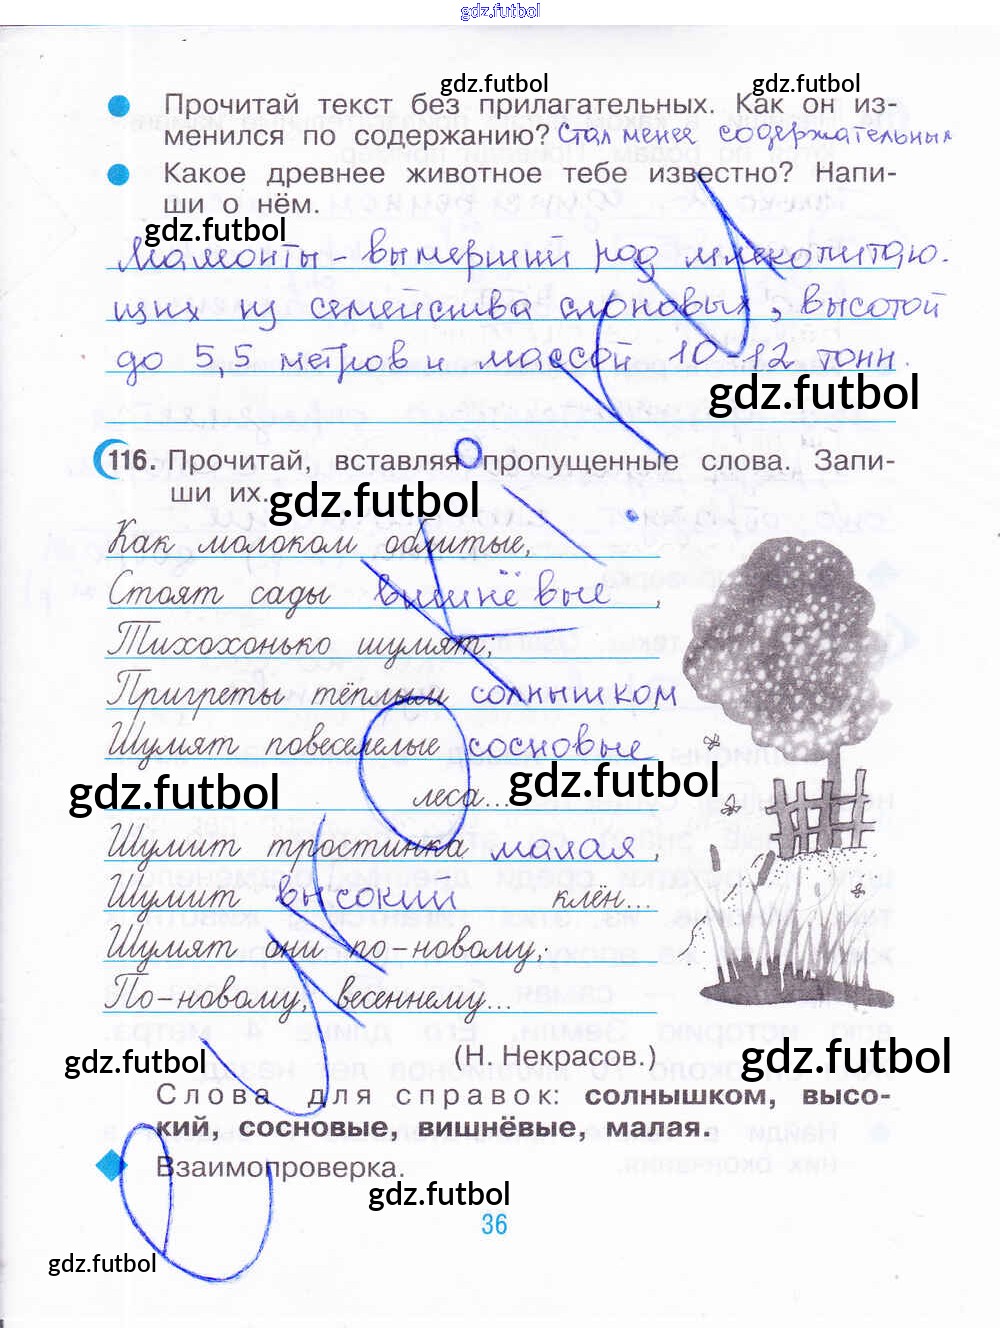 gdz.futbol
gdz.futbol gdz.futbol
Прочитай текст без прилагательных. Как он из-
менился по содержанию? Стал менее содержательным
Какое древнее животное тебе известно? Напи-
ши о нём.
gdz.futbol
Мамонты - вымерший род млекопитаю-
щих из семейства слоновых, высотой
до 5,5 метров и массой 10-12 тонн.
gdz.futbol
116. Прочитай, вставляя пропущенные слова. Запи-
ши их.
gdz.futbol
Как молоком облитые,
Стоят сады вишнёвые ,
Тихохонько шумят;
Пригреты тёплым солнышком
Шумят повеселелые сосновые
gdz.futbol gdz.futbol
леса...
Шумит тростинка малая ,
Шумит высокий клён...
Шумят они по-новому,
По-новому, весеннему...
(Н. Некрасов.)
gdz.futbol gdz.futbol
Слова для справок: солнышком, высо-
кий, сосновые, вишнёвые, малая.
Взаимопроверка.
gdz.futbol
36
gdz.futbol